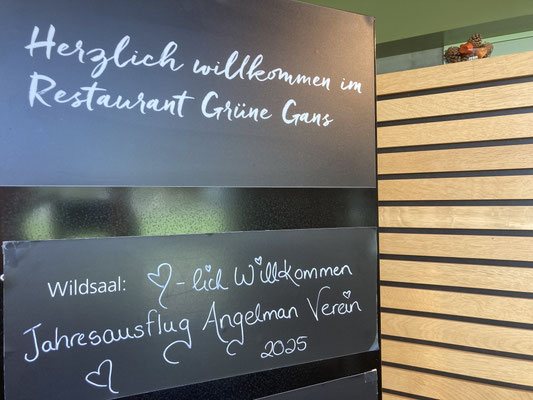 Herzlich willkommen im
Restaurant Grüne Gans
Wildsaal: ♡-lich Willkommen
Jahresausflug Angelman Verein
2025